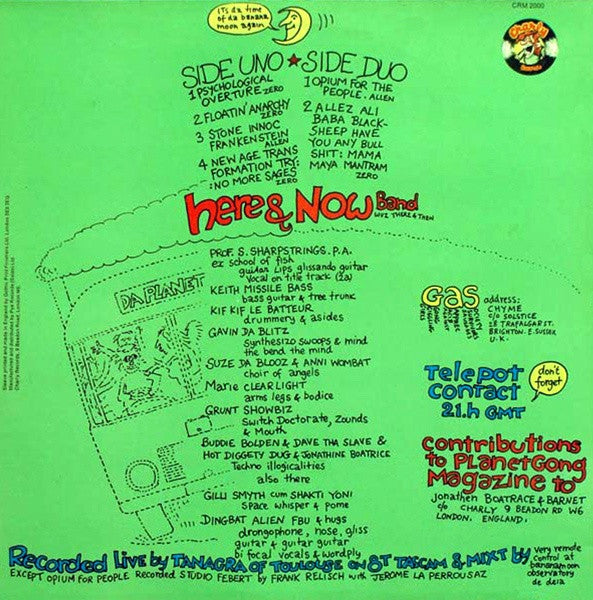 its da time
of da banana
moon again
CRM 2000
Charly
Records
SIDE UNO ★ SIDE DUO
1 PSYCHOLOGICAL
OVERTURE ZERO
2 FLOATIN' ANARCHY
ZERO
3 STONE INNOC
FRANKENSTEIN
ALLEN
4 NEW AGE TRANS
FORMATION TRY:
: NO MORE SAGES
ZERO
1 OPIUM FOR THE
PEOPLE. ALLEN
2 ALLEZ ALI
BABA BLACK-
SHEEP HAVE
YOU ANY BULL
SHIT: MAMA
MAYA MANTRAM
ZERO
here & NOW Band
WIZ THERE & THEN
DA PLANET
PROF. S. SHARPSTRINGS. P.A.
ex school of fish
guidan lips glissando guitar
Vocal on title track (2a)
KEITH MISSILE BASS
bass guitar & tree trunk
KIF KIF LE BATTEUR
drummery & asides
GAVIN DA BLITZ
Synthesizo swoops & mind
the bend the mind
SUZE DA BLOOZ & ANNI WOMBAT
choir of angels
Marie CLEARLIGHT
arms legs & bodice
GRUNT SHOWBIZ
Switch Doctorate, Zounds
& Mouth
BUDDIE BOLDEN & DAVE THA SLAVE &
HOT DIGGETY DUG & JONATHINE BOATRICE
Techno illogicalities
also there
GILLI SMYTH cum SHAKTI YONI
Space whisper & pome
DINGBAT ALIEN FBU & hugs
drongophone, nose, gliss
guitar & guitar guitar
bi focal vocals & wordply
Gas
address:
CHYME
c/o SOLSTICE
28 TRAFALGAR ST.
BRIGHTON. E. SUSSEX
U.K.
Telepot
contact
21.h GMT
don't
forget
contributions
to PLANETGONG
Magazine to
Jonathen BOATRACE & BARNET
c/o CHARLY 9 BEADON RD W6
LONDON. ENGLAND.
Recorded Live by TANAGRA OF TOULOUSE ON 8T TASCAM & MIXT by
very remote
control at
bananamoon
observatory
de deia
EXCEPT OPIUM FOR PEOPLE Recorded STUDIO FEBERT by FRANK RELISCH with JEROME LA PERROUSAZ